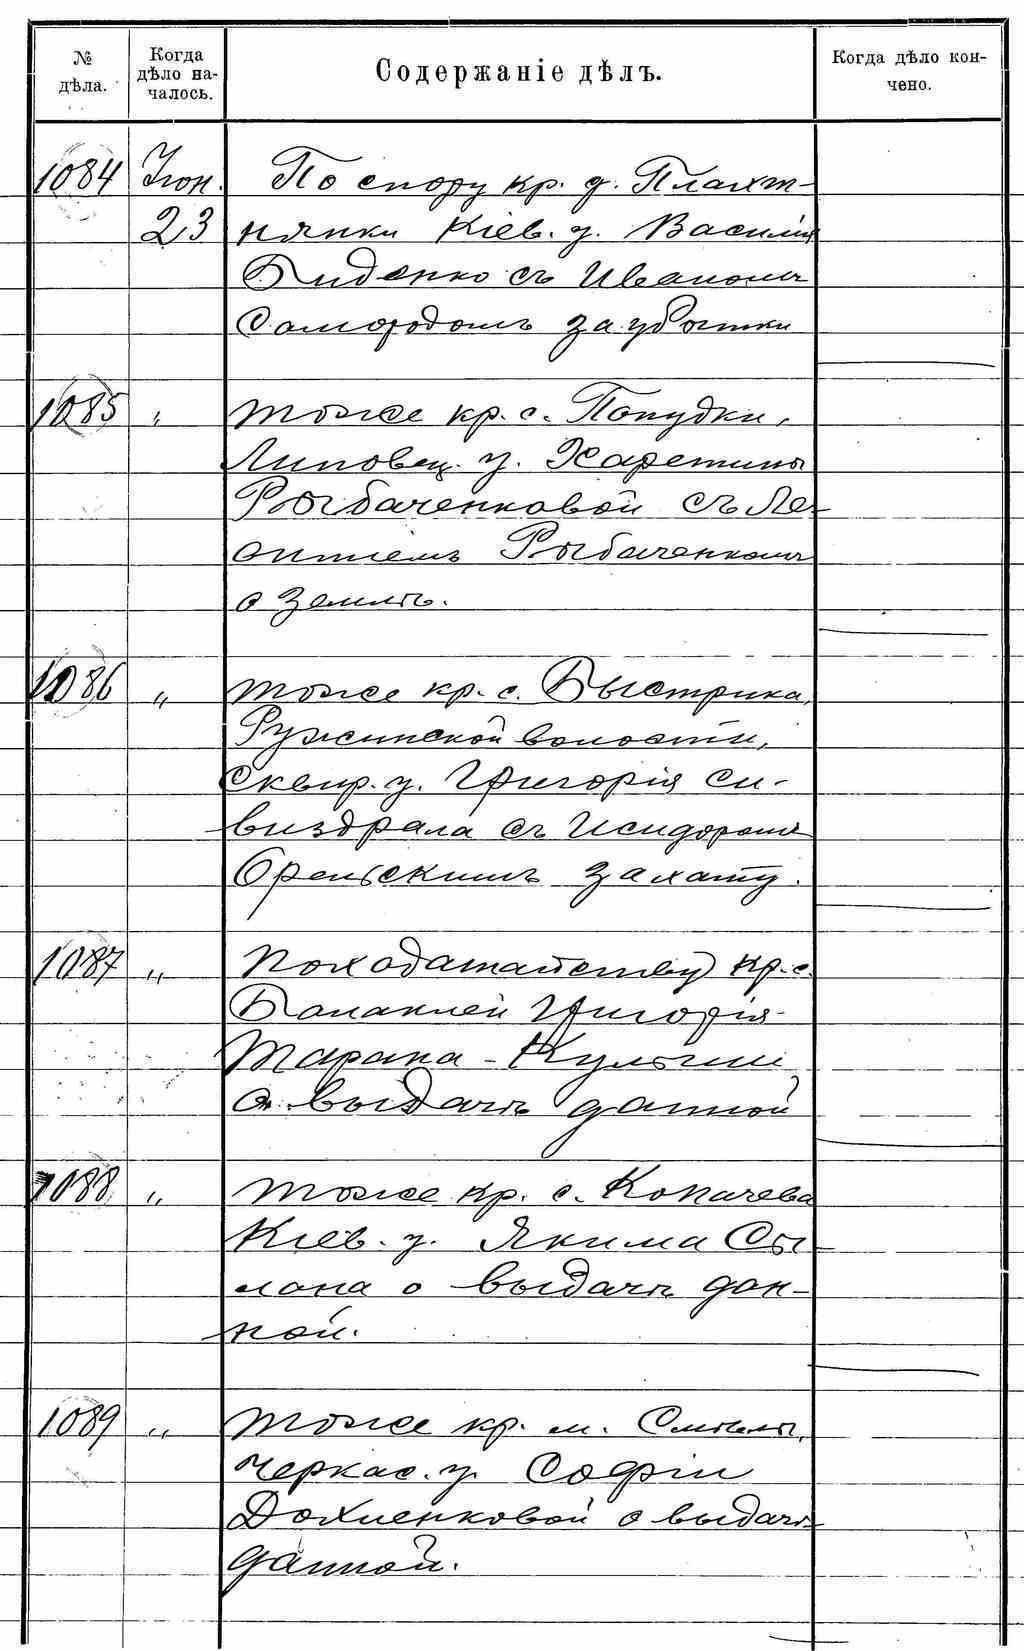 № дѣла. Когда дѣло на- Содержаніе дѣлъ. Когда дѣло кон-
чалось. чено.
1084 Іюн. По спору кр. д. Плахт-
23 нянки Кіев. у. Василія
Биденко съ Иваномъ
Самородомъ за убытки
1085 „ тоже кр. с. Попудки,
Липовец. у. Харетины
Рыбаченковой съ Ле-
онтіемъ Рыбаченкомъ
о землѣ.
1086 „ тоже кр. с. Быстрика,
Ружинской волости,
Сквир. у. Григорія Си-
виздрала съ Исидоромъ
Орельскимъ за хату.
1087 „ по ходатайству кр. с.
Балаклеи Григорія
Тарана-Кульши
о выдачѣ данной
1088 „ тоже кр. с. Копачева
Кіев. у. Якима Сы
лана о выдачѣ дан-
ной.
1089 „ тоже кр. м. Смѣлы,
Черкас. у. Софіи
Дохненковой о выдачѣ
данной.